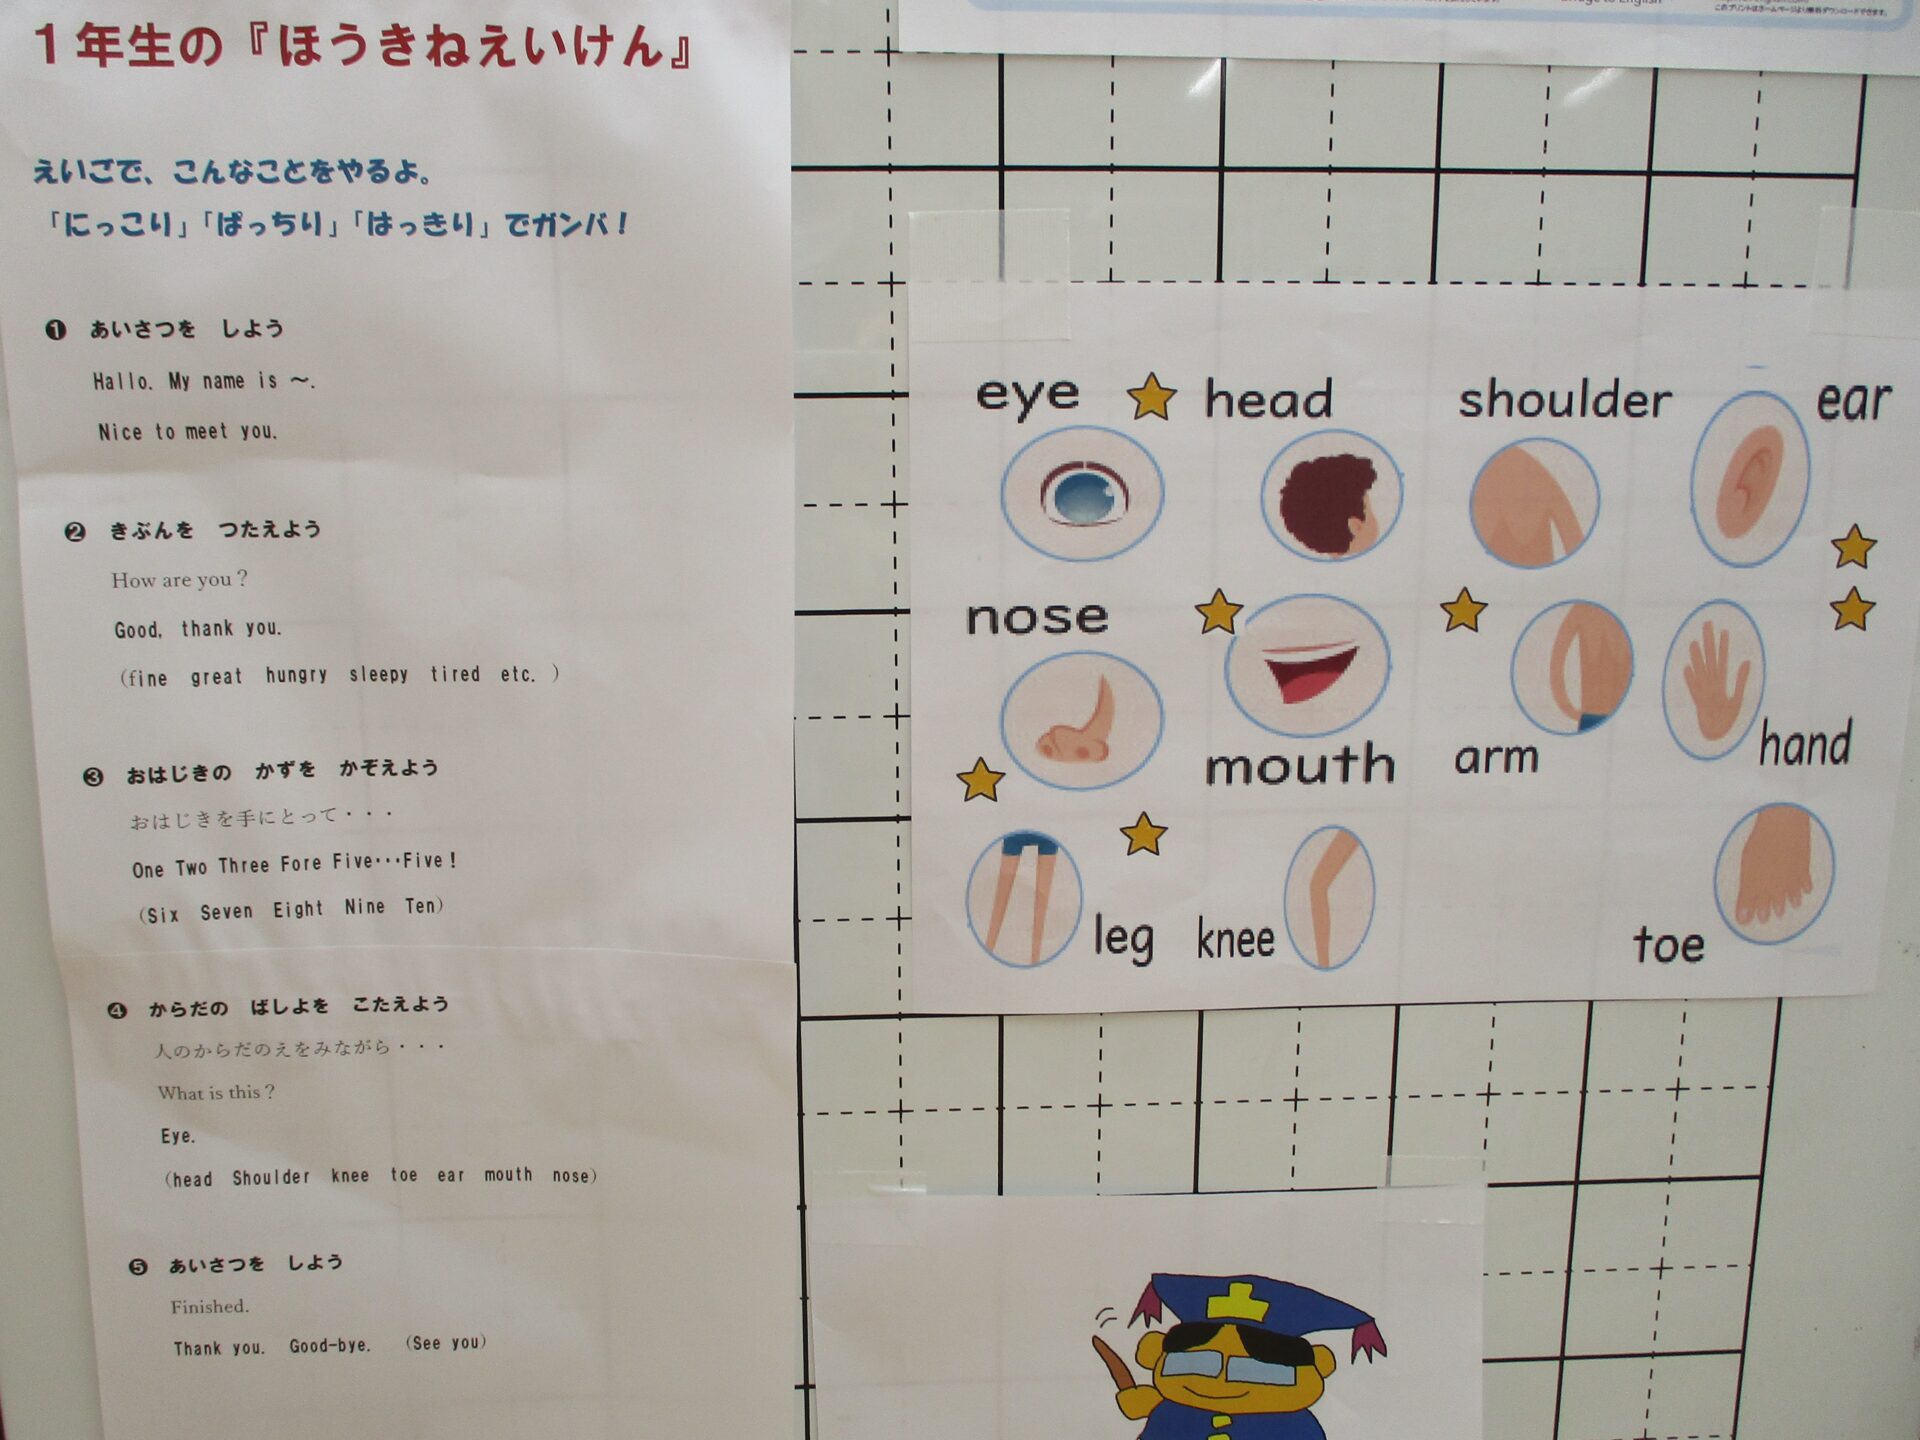 1年生の『ほうきねえいけん』
えいごで、こんなことをやるよ。
「にっこり」「ぱっちり」「はっきり」でガンバ！
❶ あいさつを しよう
Hallo. My name is ～.
Nice to meet you.
❷ きぶんを つたえよう
How are you？
Good, thank you.
（fine great hungry sleepy tired etc. ）
❸ おはじきの かずを かぞえよう
おはじきを手にとって・・・
One Two Three Fore Five･･･Five！
（Six Seven Eight Nine Ten）
❹ からだの ばしよを こたえよう
人のからだのえをみながら・・・
What is this？
Eye.
（head Shoulder knee toe ear mouth nose）
❺ あいさつを しよう
Finished.
Thank you. Good-bye. （See you）
このプリントはホームページより無料ダウンロードできます。
eye head shoulder ear
nose
mouth arm hand
leg knee toe